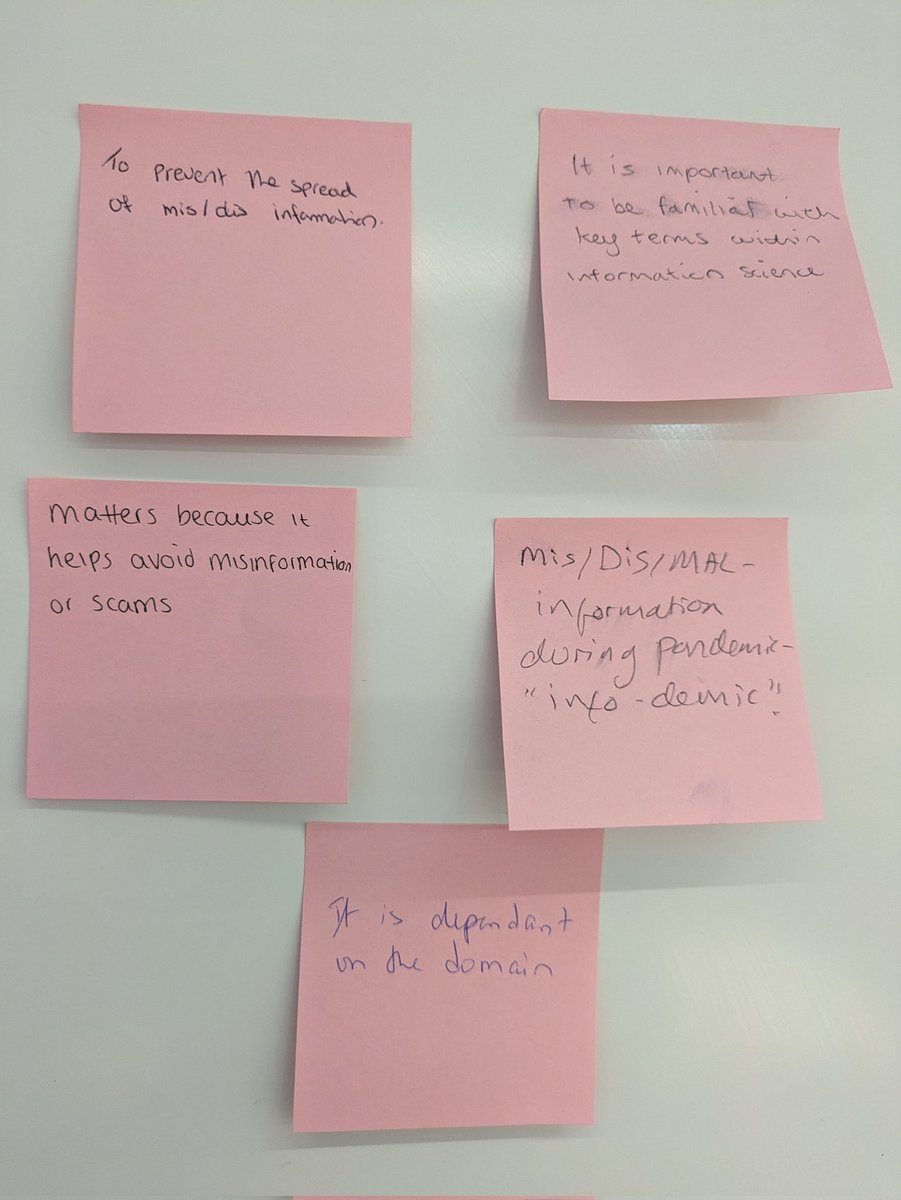 To prevent the spread
of mis/dis information.
It is important
to be familiar with
key terms within
information science
Matters because it
helps avoid misinformation
or scams
Mis/Dis/MAL-
information
during pandemic-
"info-demic".
It is dependant
on the domain